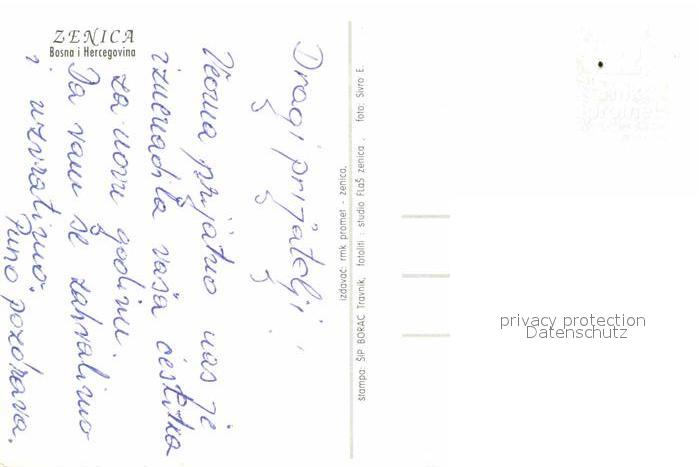 ZENICA
Bosna i Hercegovina
Dragi prijatelji!
Veoma prijatno nas je
iznenadila vaša čestitka
za novu godinu.
Da vam se zahvalimo
i uzvratimo.
Puno pozdrava.
izdavač: rmk promet - zenica,
štampa: ŠIP BORAC Travnik, fotoliti: studio FLaŠ zenica, foto: Sivro E.
rmk
promet
privacy protection
Datenschutz